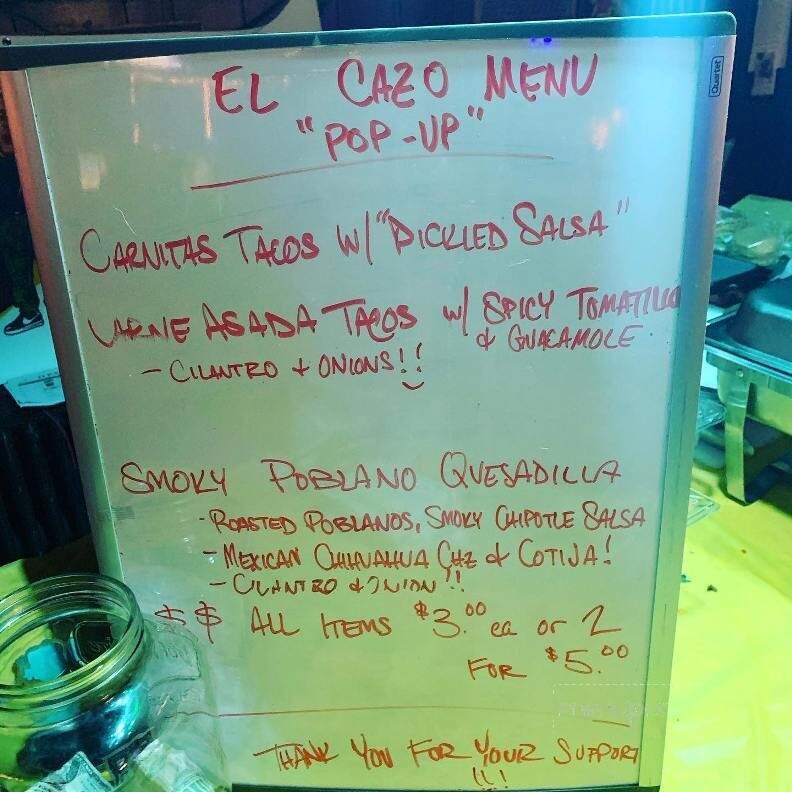 Quartet
EL CAZO MENU
"POP-UP"
CARNITAS TACOS W/ "PICKLED SALSA"
CARNE ASADA TACOS W/ SPICY TOMATILLO
& GUACAMOLE
- CILANTRO + ONIONS!!
SMOKY POBLANO QUESADILLA
- ROASTED POBLANOS, SMOKY CHIPOTLE SALSA
- MEXICAN CHIHUAHUA CHZ & COTIJA!
- CILANTRO & ONION!!
$$ ALL ITEMS $3.00 ea or 2
FOR $5.00
THANK YOU FOR YOUR SUPPORT
!!!